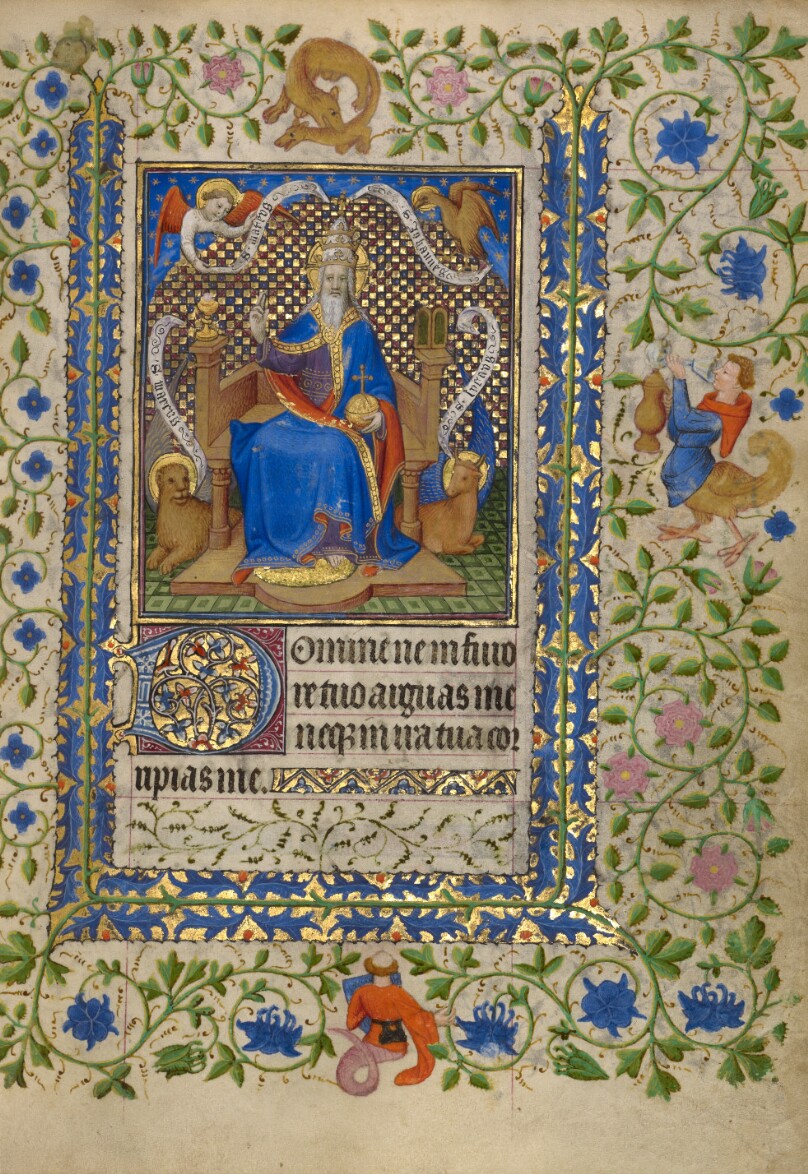 S. matheus
S. Johannes
S. marcus
S. lucas
Domine ne in furo
re tuo arguas me
neq3 in ira tua cor
ripias me.